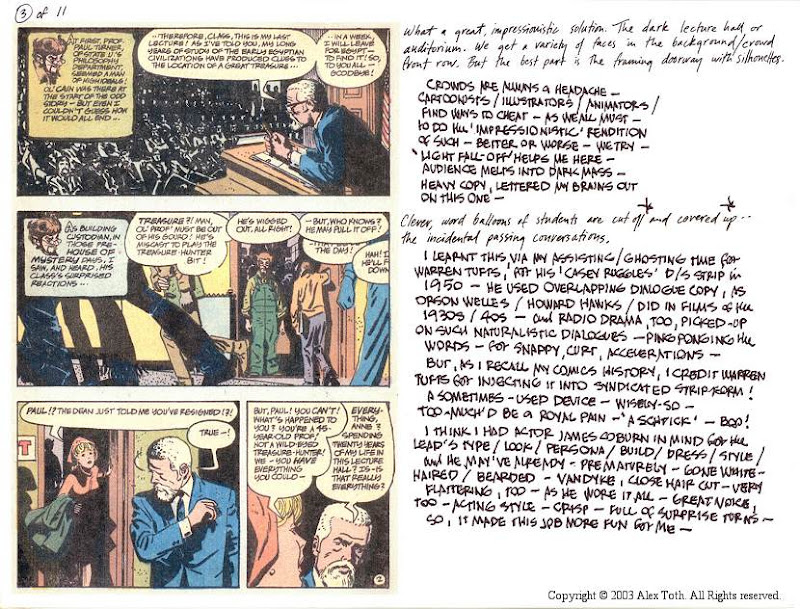 3 of 11
AT FIRST, PROF.
PAUL TURNER,
OF STATE U.'S
PHILOSOPHY
DEPARTMENT,
SEEMED A MAN
OF HIGH IDEALS!
OL' CAIN WAS THERE AT
THE START OF THE ODD
STORY -- BUT EVEN I
COULDN'T GUESS HOW
IT WOULD ALL END ...
... THEREFORE, CLASS, THIS IS MY LAST
LECTURE! AS I'VE TOLD YOU, MY LONG
YEARS OF STUDY OF THE EARLY EGYPTIAN
CIVILIZATIONS HAVE PRODUCED CLUES TO
THE LOCATION OF A GREAT TREASURE...
... IN A WEEK,
I WILL LEAVE
FOR EGYPT --
TO FIND IT! SO,
TO YOU ALL --
GOODBYE!
AS BUILDING
CUSTODIAN, IN
THOSE PRE-
HOUSE OF
MYSTERY DAYS, I
SAW, AND HEARD, HIS
CLASS'S SURPRISED
REACTIONS ...
TREASURE?! MAN,
OL' PROF MUST BE OUT
OF HIS GOURD! HE'S
MISCAST TO PLAY THE
TREASURE-HUNTER
BIT!
HE'S WIGGED
OUT, ALL RIGHT!
-- BUT, WHO KNOWS?
HE MAY PULL IT OFF!
THE DAY!
HAH!
HE'LL F
DOWN
PAUL!? THE DEAN JUST TOLD ME YOU'VE RESIGNED!?!
TRUE --!
BUT, PAUL! YOU CAN'T!
WHAT'S HAPPENED TO
YOU? YOU'RE A 45-
YEAR-OLD PROF,
NOT A WILD-EYED
TREASURE-HUNTER!
WE -- YOU HAVE
EVERYTHING
YOU COULD --
EVERY-
THING,
ANNE?
SPENDING
TWENTY YEARS
OF MY LIFE IN
THIS LECTURE
HALL? IS - IS
THAT REALLY
EVERYTHING?
2
What a great, impressionistic solution. The dark lecture hall or
auditorium. We get a variety of faces in the background/crowd
front row. But the best part is the framing doorway with silhouettes.
CROWDS ARE ALWAYS A HEADACHE —
CARTOONISTS / ILLUSTRATORS / ANIMATORS /
FIND WAYS TO CHEAT — AS WE ALL MUST —
TO DO THE 'IMPRESSIONISTIC' RENDITION
OF SUCH — BETTER OR WORSE — WE TRY —
'LIGHT FALL-OFF' HELPS ME HERE —
AUDIENCE MELTS INTO DARK MASS —
HEAVY COPY, LETTERED MY BRAINS OUT
ON THIS ONE —
Clever, word balloons of students are cut off and covered up...
the incidental passing conversations.
I LEARNT THIS VIA MY ASSISTING / GHOSTING TIME FOR
WARREN TUFTS, FOR HIS 'CASEY RUGGLES' D/S STRIP IN
1950 — HE USED OVERLAPPING DIALOGUE COPY, AS
ORSON WELLES / HOWARD HAWKS / DID IN FILMS OF THE
1930S / 40S — AND RADIO DRAMA, TOO, PICKED-UP
ON SUCH NATURALISTIC DIALOGUES — PING PONGING THE
WORDS — FOR SNAPPY, CURT, ACCELERATIONS —
BUT, AS I RECALL MY COMICS HISTORY, I CREDIT WARREN
TUFTS FOR INJECTING IT INTO SYNDICATED STRIP-FORM!
A SOMETIMES-USED DEVICE — WISELY-SO —
TOO-MUCH'D BE A ROYAL PAIN — 'A SCHTICK' — BOO!
I THINK I HAD ACTOR JAMES COBURN IN MIND FOR THE
LEAD'S TYPE / LOOK / PERSONA / BUILD / DRESS / STYLE /
AND HE MAY'VE ALREADY — PREMATURELY — GONE WHITE-
HAIRED / BEARDED — VANDYKE, CLOSE HAIR CUT — VERY
FLATTERING, TOO — AS HE WORE IT ALL — GREAT VOICE,
TOO — ACTING STYLE — CRISP — FULL OF SURPRISE TURNS —
SO, IT MADE THIS JOB MORE FUN FOR ME —
Copyright © 2003 Alex Toth. All Rights reserved.